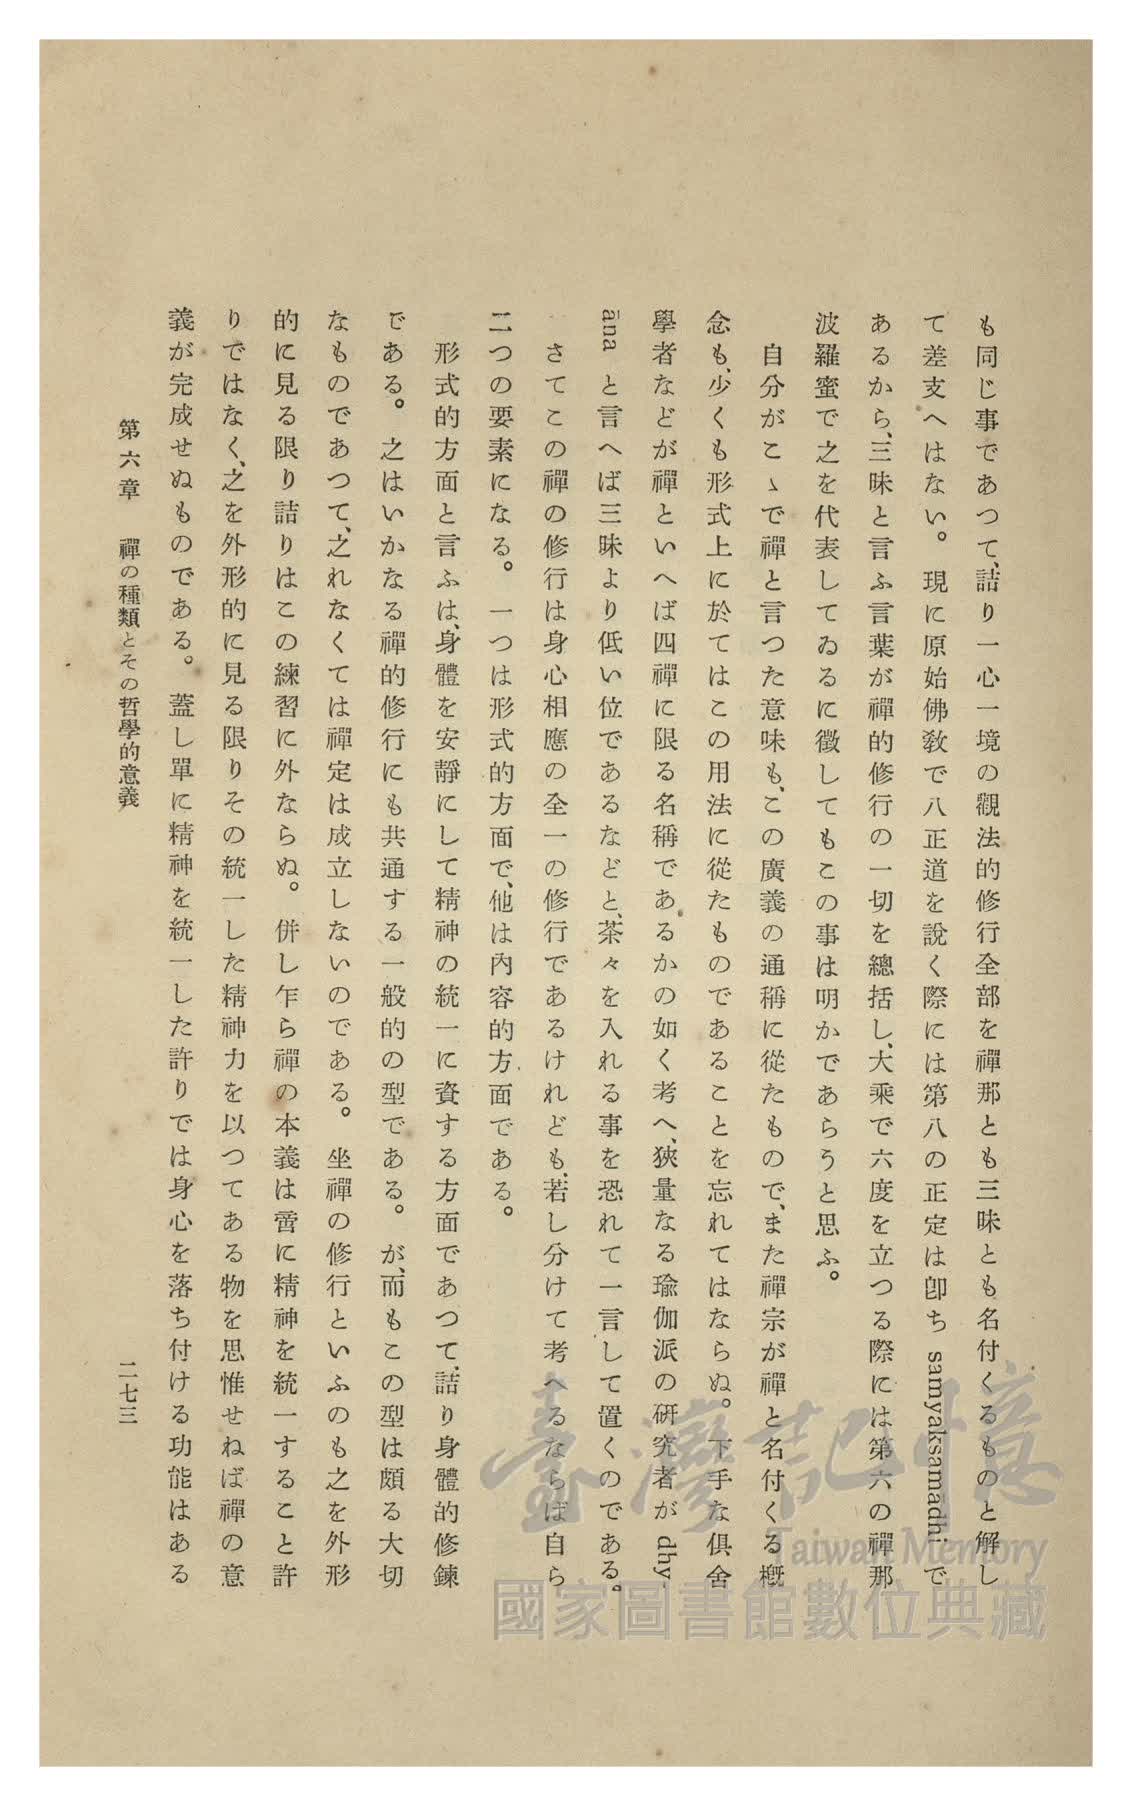 も同じ事であつて、詰り一心一境の觀法的修行全部を禪那とも三昧とも名付くるものと解し
て差支へはない。現に原始佛敎で八正道を說く際には第八の正定は卽ち samyaksamādhi で
あるから、三昧と言ふ言葉が禪的修行の一切を總括し、大乘で六度を立つる際には第六の禪那
波羅蜜で之を代表してゐるに徵してもこの事は明かであらうと思ふ。
自分がこゝで禪と言つた意味も、この廣義の通稱に從たもので、また禪宗が禪と名付くる槪
念も、少くも形式上に於てはこの用法に從たものであることを忘れてはならぬ。下手な俱舍
學者などが禪といへば四禪に限る名稱であるかの如く考へ、狹量なる瑜伽派の硏究者が dhy-
āna と言へば三昧より低い位であるなどと、茶々を入れる事を恐れて一言して置くのである。
さてこの禪の修行は身心相應の全一の修行であるけれども、若し分けて考へるならば自ら
二つの要素になる。一つは形式的方面で、他は內容的方面である。
形式的方面と言ふは、身體を安靜にして精神の統一に資する方面であつて、詰り身體的修鍊
である。之はいかなる禪的修行にも共通する一般的の型である。が、而もこの型は頗る大切
なものであつて、之れなくては禪定は成立しないのである。坐禪の修行といふのも之を外形
的に見る限り詰りはこの練習に外ならぬ。併し乍ら禪の本義は啻に精神を統一すること許
りではなく、之を外形的に見る限りその統一した精神力を以つてある物を思惟せねば禪の意
義が完成せぬものである。蓋し單に精神を統一した許りでは身心を落ち付ける功能はある
第六章 禪の種類とその哲學的意義 二七三
臺灣記憶
Taiwan Memory
國家圖書館數位典藏